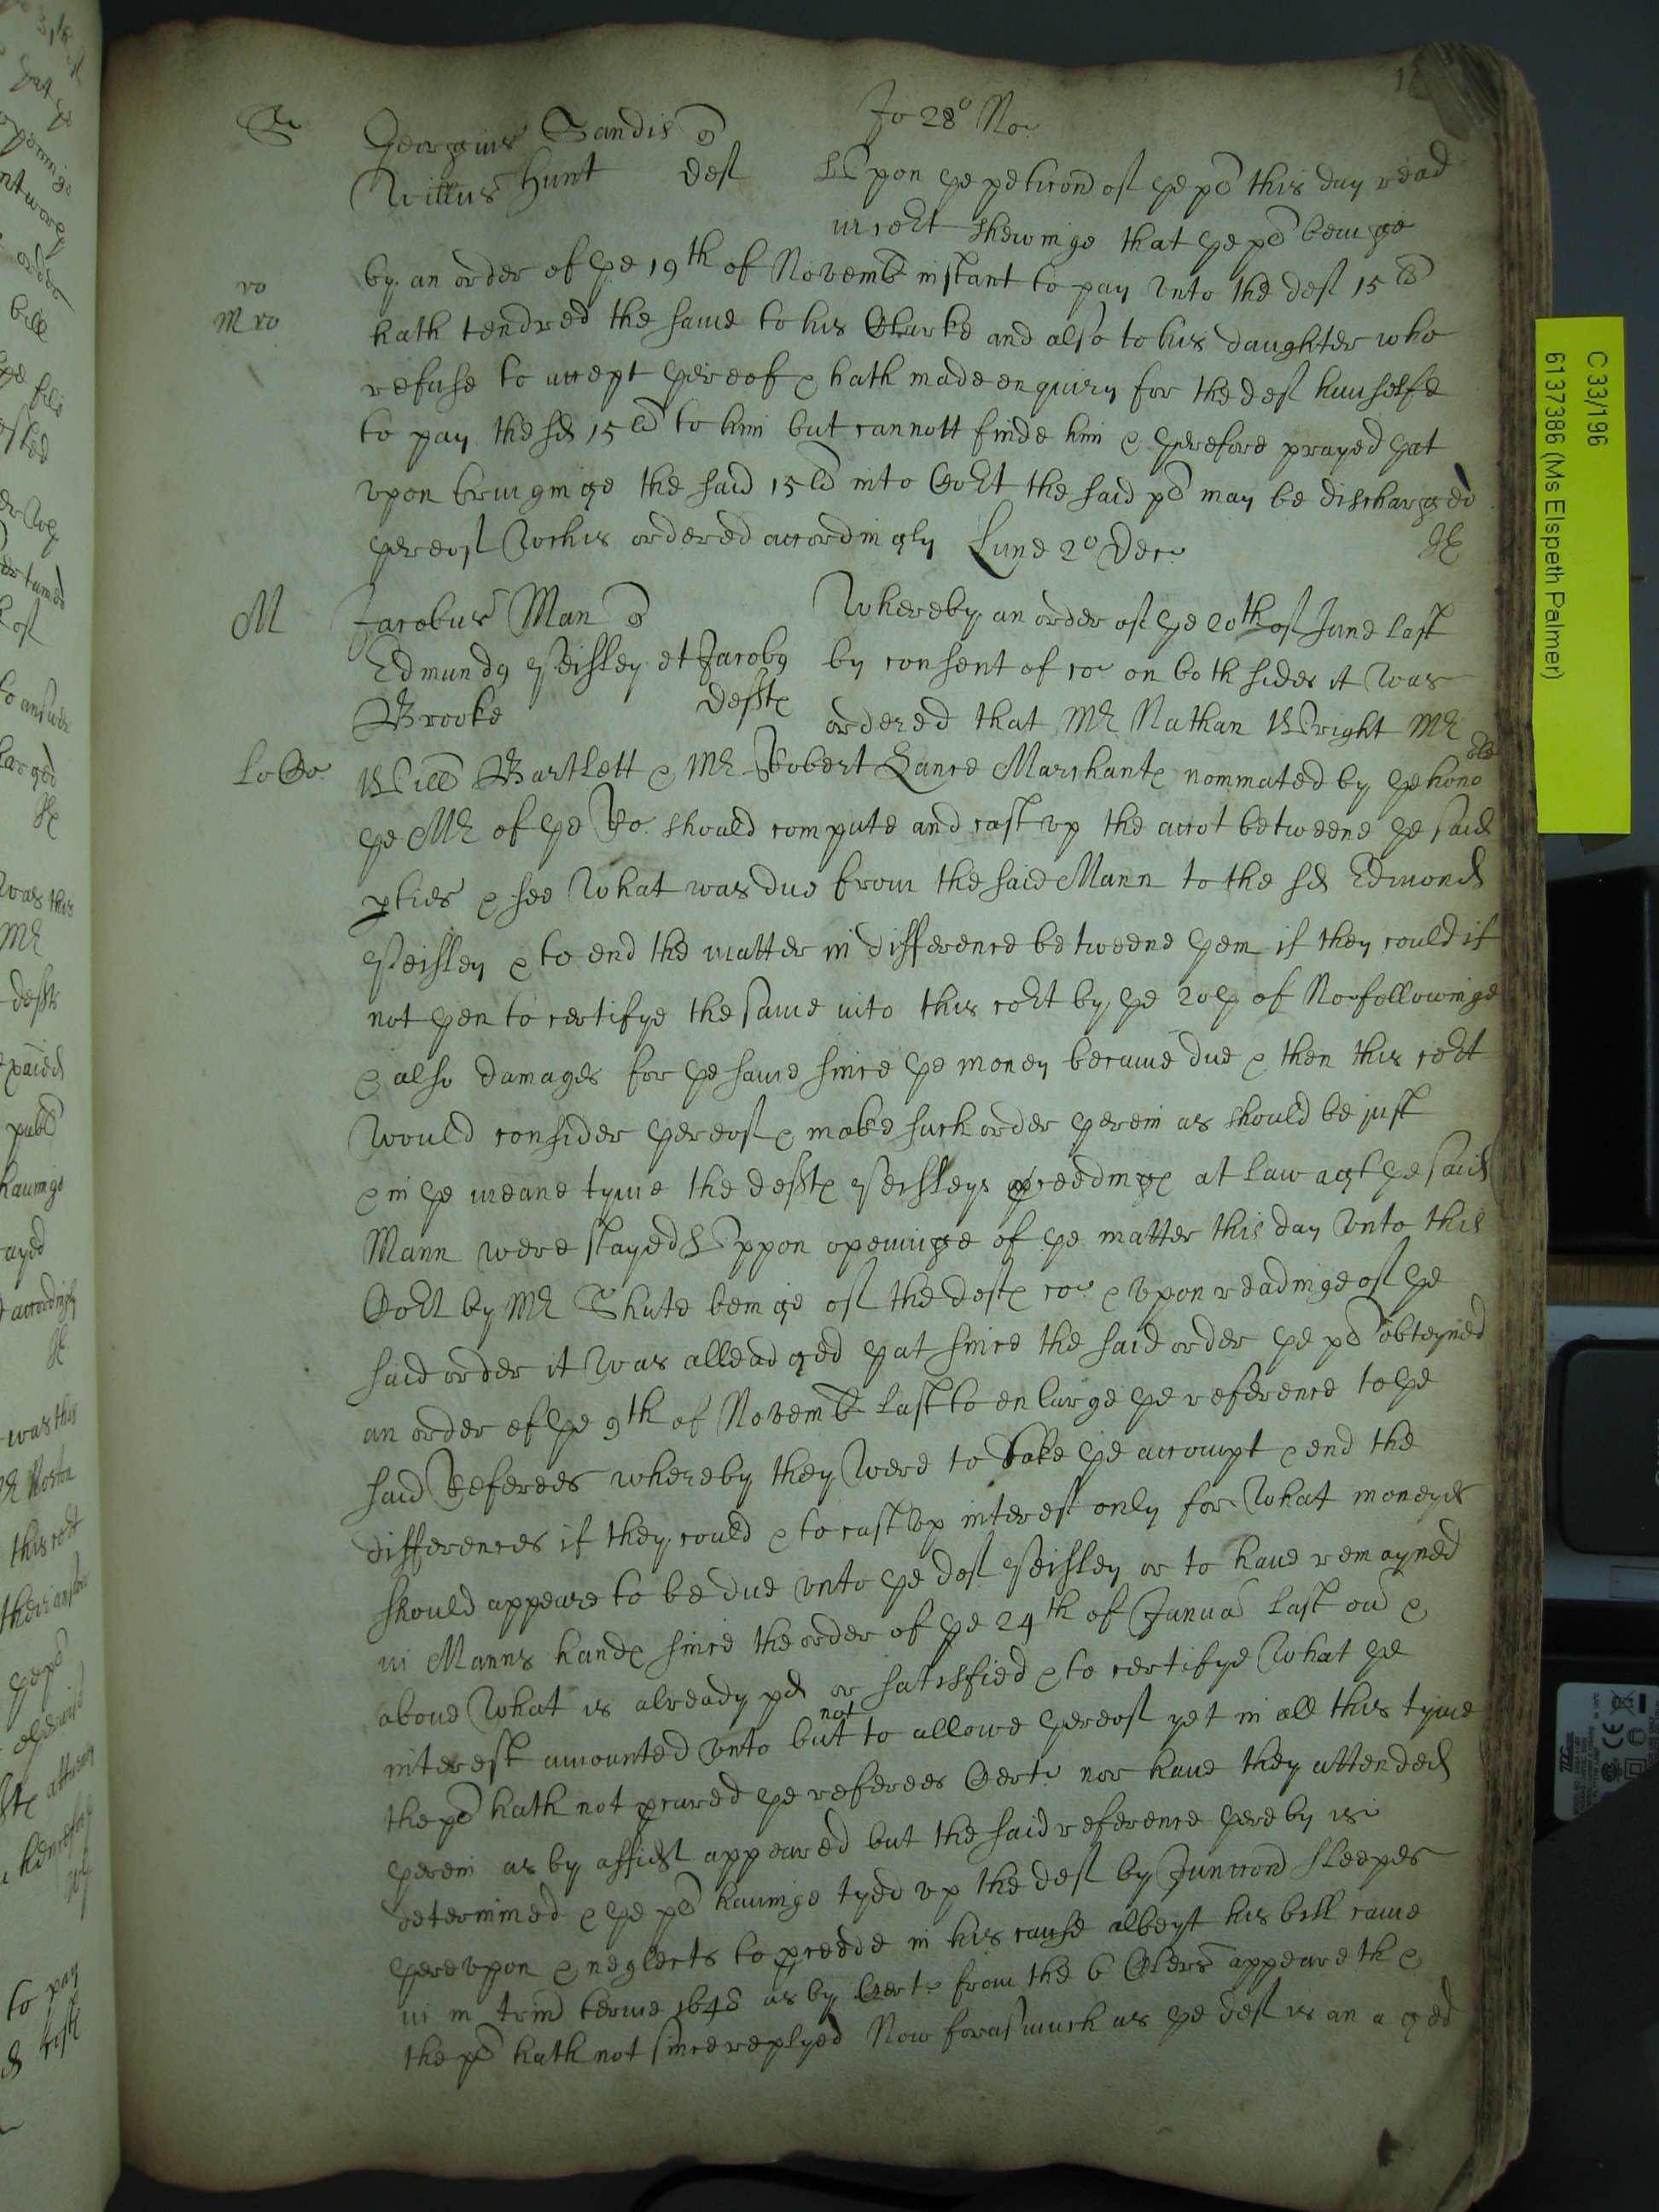 Jo 28o No:
Sa Georgius Sandis q
Willus Hunt deft Upon ye peticon of ye pt this day read
in cort shewinge that ye pt beinge
by an order of ye 19th of Novemb instant to pay unto the deft 15li
ro
M ro
hath tendred the same to his Clarke and also to his daughter who
refuse to accept thereof & hath made enquiry for the deft himselfe
to pay the sd 15li to him but cannott finde him & therefore prayed yat
upon bringinge the said 15li into Cort the said pt may be discharged
thereof wch is ordered accordingly Lune 2o Dec:
M Jacobus Man q Whereby an order of ye 20th of June last
Edmundq Peisley et Jacobq by consent of co: on both sides it was
Brooke defts ordered that Mr Nathan Wright Mr
Will Bartlett & Mr Robert Lance Marchants nominated by ye hono ble
ye Mr of ye Ro: should compute and cast up the accot betweene ye said
pties & see what was due from the said Mann to the sd Edmond
Peisley & to end the matter in difference betweene yem if they could if
not yen to certifye the same into this cort by ye 20th of No: followinge
& also damages for ye same since ye money became due & then this cort
would consider thereof & make such order therein as should be just
& in ye meane tyme the defts Peisleys pceedings at law agt ye said
Mann were stayed Uppon openinge of ye matter this day unto this
Cort by Mr Shute beinge of the defts co: & upon readinge of ye
said order it was alleadged yat since the said order ye pt obteyned
an order of ye 9th of Novemb last to enlarge ye reference to ye
said Referees whereby they were to take ye accompt & end the
differences if they could & to cast up interest only for what moneyes
should appeare to be due unto ye deft Peisley or to have remayned
in Manns hands since the order of ye 24th of Janua last ov &
above what is already pd or satisfied & to certifye what ye
interest amounted unto but not to allowe thereof yet in all this tyme
the pt hath not pcured ye referees Cert: nor have they attended
therein as by affidt appeared but the said reference thereby is
determined & ye pt havinge tyed up the deft by Junccon sleepes
thereupon & neglects to pceede in his cause albeyt his bill came
in in trin terme 1648 as by Cert: from the 6 Clers appeareth &
the pt hath not since replyed Now forasmuch as ye deft is an aged
C 33/196
6137386 (Ms Elspeth Palmer)